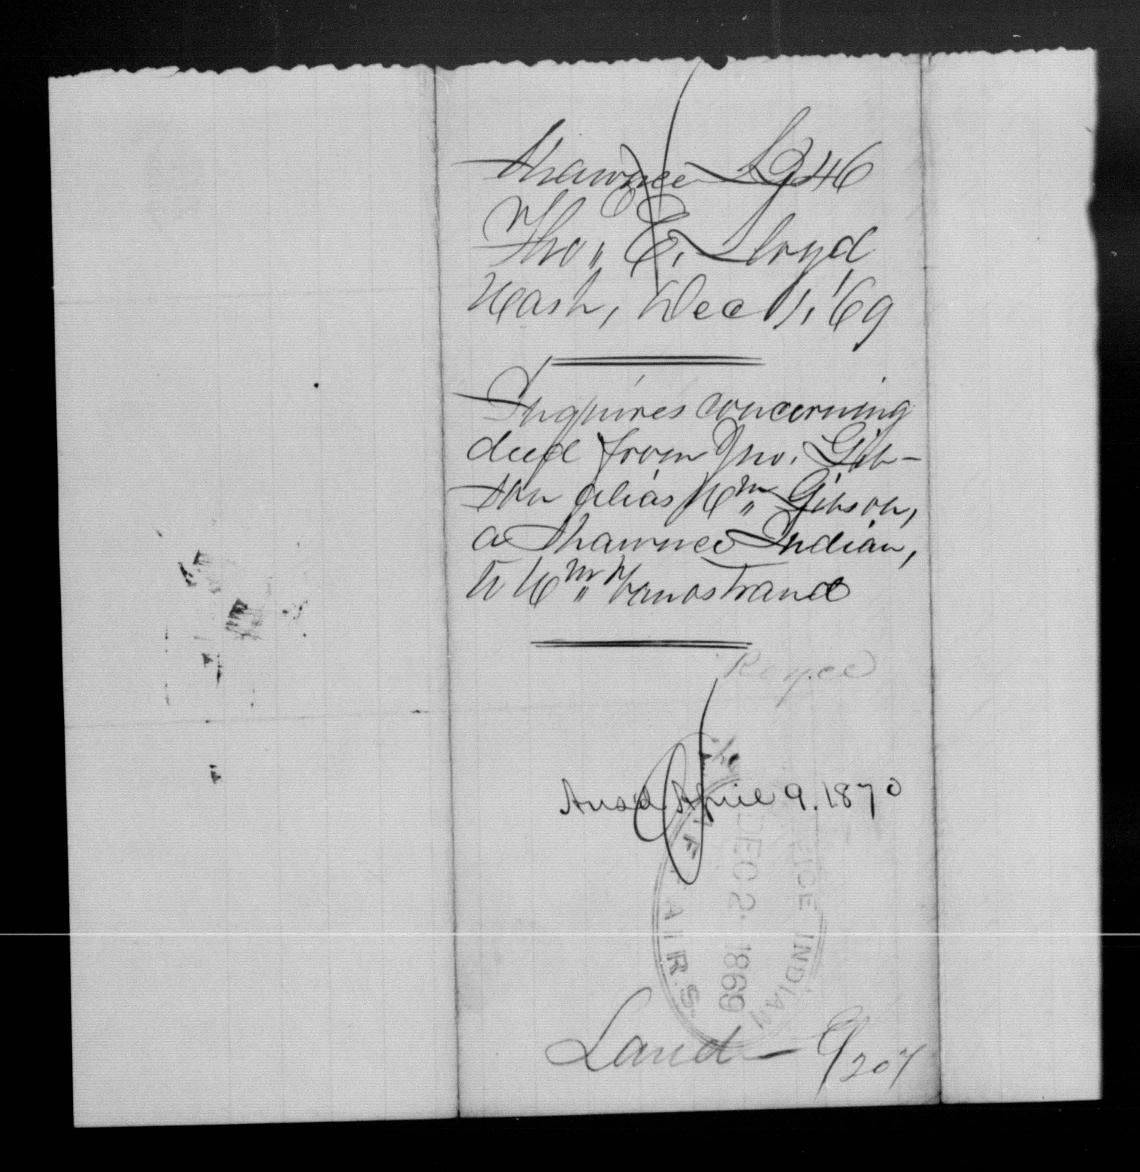 Shawnee L 946
Tho,, E. Lloyd
Wash, Dec 1, '69
Inquires concerning
deed from Jno. Gib-
son alias Wm,, Gibson,
a Shawnee Indian,
to Wm,, Vanostrand
Royce
Ans'd April 9. 1870
OFFICE INDIAN
DEC 2 1869
AFFAIRS.
Land 9/207